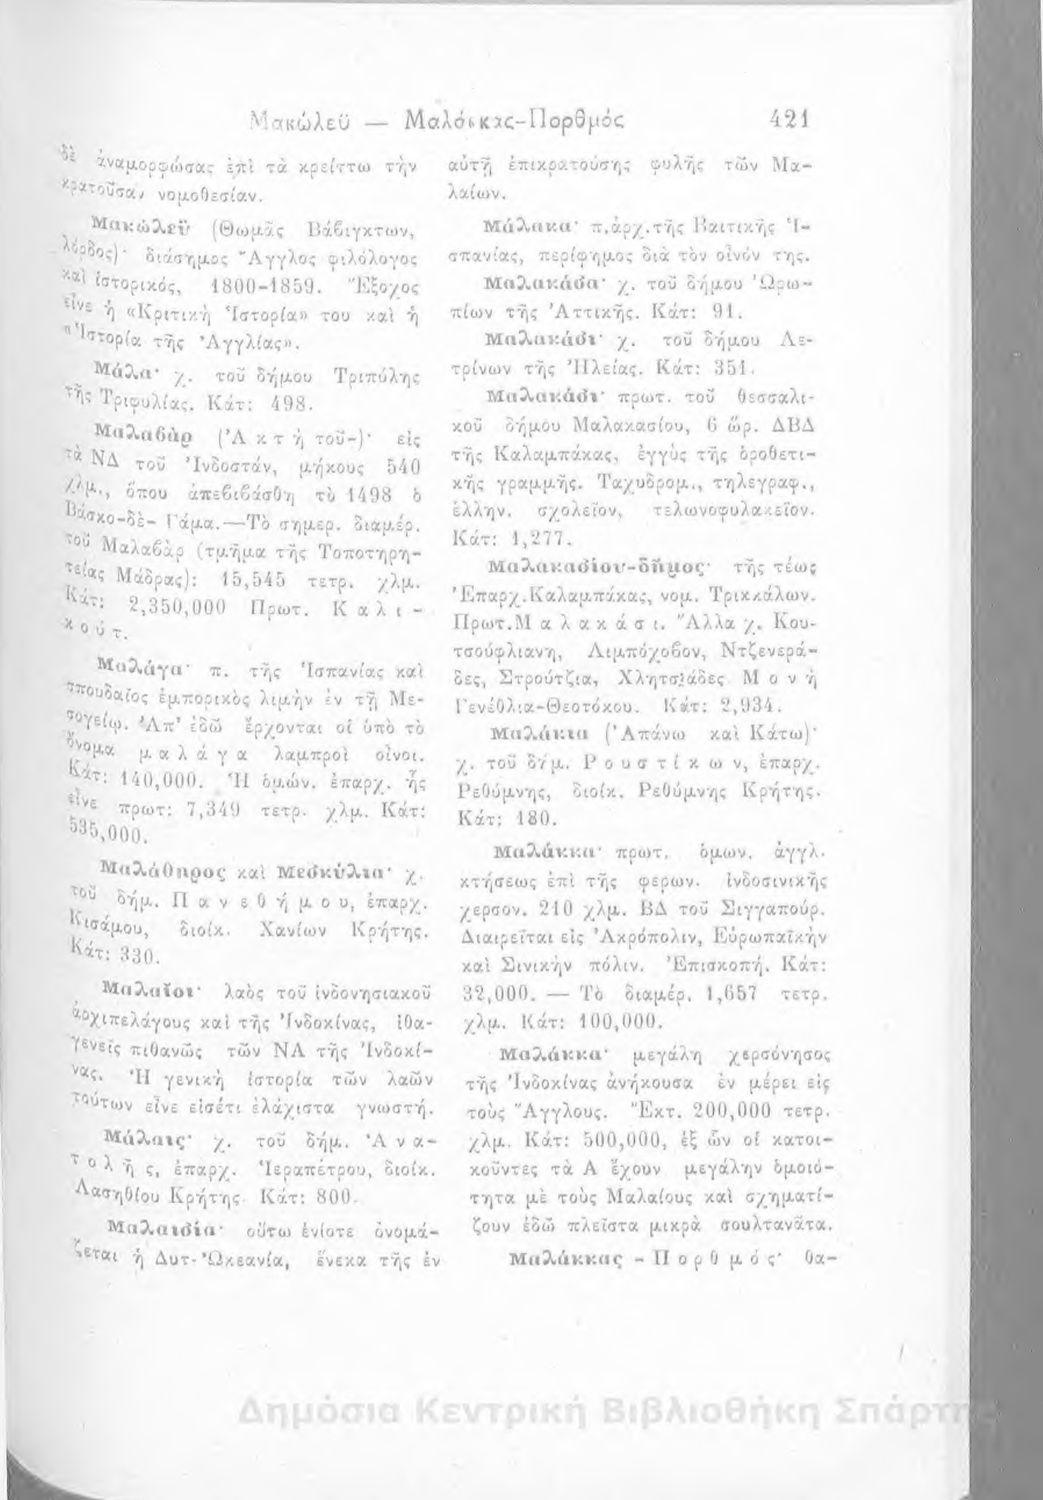 Μακώλεϋ — Μαλάκκας-Πορθμός 421
δὲ ἀναμορφώσας ἐπὶ τὰ κρείττω τὴν
κρατοῦσαν νομοθεσίαν.
Μακώλεϋ (Θωμᾶς Βάβιγκτων,
λόρδος)· διάσημος Ἄγγλος φιλόλογος
καὶ ἱστορικός, 1800-1859. Ἔξοχος
εἶνε ἡ «Κριτικὴ Ἱστορία» του καὶ ἡ
«Ἱστορία τῆς Ἀγγλίας».
Μάλα· χ. τοῦ δήμου Τριπύλης
τῆς Τριφυλίας. Κάτ: 498.
Μαλαβὰρ (Ἀκτὴ τοῦ-)· εἰς
τὰ ΝΔ τοῦ Ἰνδοστάν, μήκους 540
χλμ., ὅπου ἀπεβιβάσθη τὸ 1498 ὁ
Βάσκο-δὲ-Γάμα.—Τὸ σημερ. διαμέρ.
τοῦ Μαλαβὰρ (τμῆμα τῆς Τοποτηρη-
τείας Μάδρας): 15,545 τετρ. χλμ.
Κάτ: 2,350,000 Πρωτ. Καλι-
κούτ.
Μαλάγα· π. τῆς Ἱσπανίας καὶ
σπουδαῖος ἐμπορικὸς λιμὴν ἐν τῇ Με-
σογείῳ. Ἀπ' ἐδῶ ἔρχονται οἱ ὑπὸ τὸ
ὄνομα μαλάγα λαμπροὶ οἶνοι.
Κάτ: 140,000. Ἡ ὁμών. ἐπαρχ. ἧς
εἶνε πρωτ: 7,349 τετρ. χλμ. Κάτ:
535,000.
Μαλάθηρος καὶ Μεσκύλια· χ.
τοῦ δήμ. Πανεθήμου, ἐπαρχ.
Κισάμου, διοίκ. Χανίων Κρήτης.
Κάτ: 330.
Μαλαῖοι· λαὸς τοῦ ἰνδονησιακοῦ
ἀρχιπελάγους καὶ τῆς Ἰνδοκίνας, ἰθα-
γενεῖς πιθανῶς τῶν ΝΑ τῆς Ἰνδοκί-
νας. Ἡ γενικὴ ἱστορία τῶν λαῶν
τούτων εἶνε εἰσέτι ἐλάχιστα γνωστή.
Μάλαις· χ. τοῦ δήμ. Ἀνα-
τολῆς, ἐπαρχ. Ἱεραπέτρου, διοίκ.
Λασηθίου Κρήτης. Κάτ: 800.
Μαλαισία· οὕτω ἐνίοτε ὀνομά-
ζεται ἡ Δυτ-Ὠκεανία, ἕνεκα τῆς ἐν
αὐτῇ ἐπικρατούσης φυλῆς τῶν Μα-
λαίων.
Μάλακα· π.ἀρχ.τῆς Βαιτικῆς Ἱ-
σπανίας, περίφημος διὰ τὸν οἶνόν της.
Μαλακάσα· χ. τοῦ δήμου Ὠρω-
πίων τῆς Ἀττικῆς. Κάτ: 91.
Μαλακάσι· χ. τοῦ δήμου Λε-
τρίνων τῆς Ἠλείας. Κάτ: 351.
Μαλακάσι· πρωτ. τοῦ θεσσαλι-
κοῦ δήμου Μαλακασίου, 6 ὥρ. ΔΒΔ
τῆς Καλαμπάκας, ἐγγὺς τῆς ὁροθετι-
κῆς γραμμῆς. Ταχυδρομ., τηλεγραφ.,
ἑλλην. σχολεῖον, τελωνοφυλακεῖον.
Κάτ: 1,277.
Μαλακασίου-δῆμος· τῆς τέως
Ἐπαρχ.Καλαμπάκας, νομ. Τρικκάλων.
Πρωτ.Μαλακάσι. Ἄλλα χ. Κου-
τσούφλιανη, Λιμπόχοβον, Ντζενερά-
δες, Στρούτζια, Χλητσιάδες Μονὴ
Γενέθλια-Θεοτόκου. Κάτ: 2,934.
Μαλάκια (Ἀπάνω καὶ Κάτω)·
χ. τοῦ δήμ. Ρουστίκων, ἐπαρχ.
Ρεθύμνης, διοίκ. Ρεθύμνης Κρήτης.
Κάτ: 180.
Μαλάκκα· πρωτ. ὁμων. ἀγγλ.
κτήσεως ἐπὶ τῆς φερων. ἰνδοσινικῆς
χερσον. 210 χλμ. ΒΔ τοῦ Σιγγαπούρ.
Διαιρεῖται εἰς Ἀκρόπολιν, Εὐρωπαϊκὴν
καὶ Σινικὴν πόλιν. Ἐπισκοπή. Κάτ:
32,000. — Τὸ διαμέρ. 1,657 τετρ.
χλμ. Κάτ: 100,000.
Μαλάκκα· μεγάλη χερσόνησος
τῆς Ἰνδοκίνας ἀνήκουσα ἐν μέρει εἰς
τοὺς Ἄγγλους. Ἔκτ. 200,000 τετρ.
χλμ. Κάτ: 500,000, ἐξ ὧν οἱ κατοι-
κοῦντες τὰ Α ἔχουν μεγάλην ὁμοιό-
τητα μὲ τοὺς Μαλαίους καὶ σχηματί-
ζουν ἐδῶ πλεῖστα μικρὰ σουλτανᾶτα.
Μαλάκκας - Πορθμός· θα-
Δημόσια Κεντρική Βιβλιοθήκη Σπάρτης